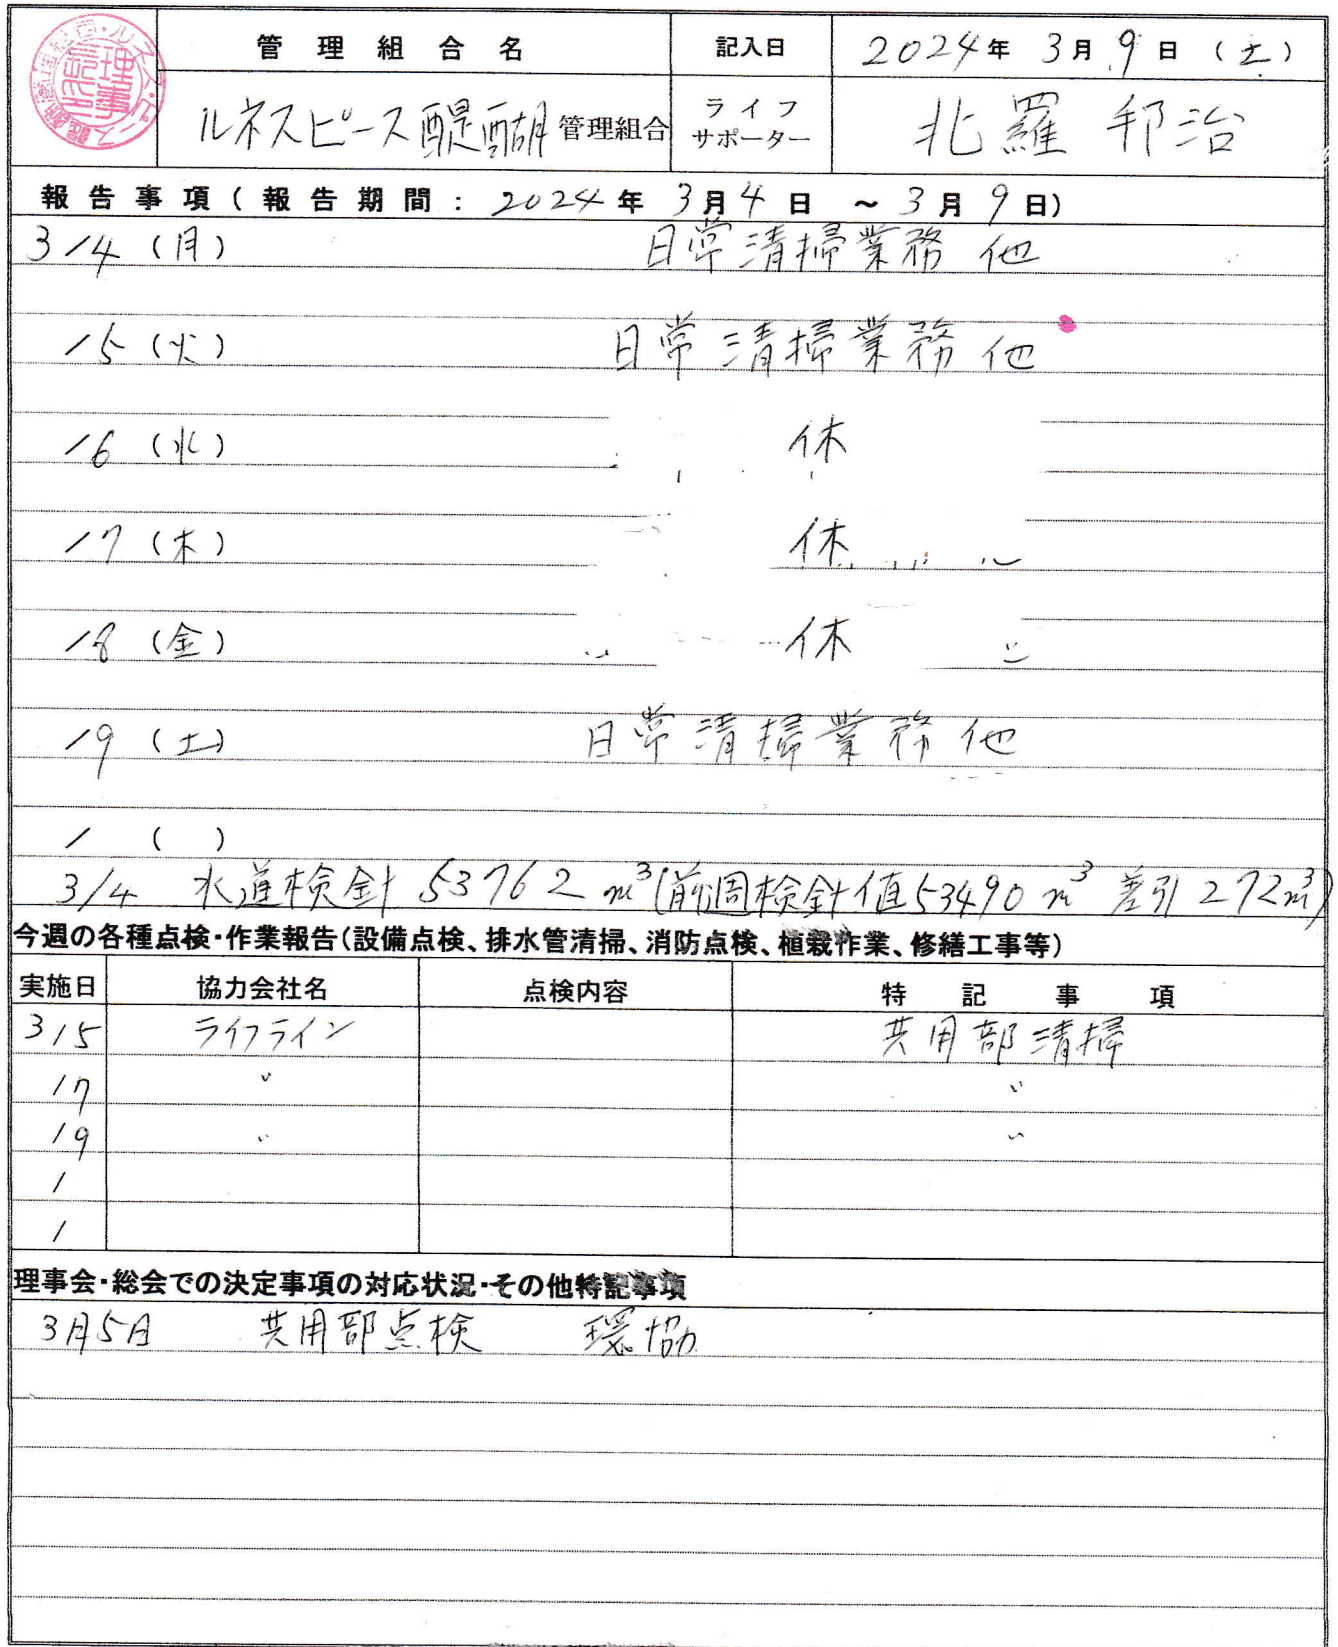 管理組合名 記入日 2024年 3月 9日 (土)
ルネスピース醍醐 管理組合 ライフサポーター 北羅 邦治
理事長印
報告事項(報告期間: 2024年 3月4日 ～3月 9日)
3/4 (月) 日常清掃業務 他
/5 (火) 日常清掃業務 他
/6 (水) 休
/7 (木) 休
/8 (金) 休
/9 (土) 日常清掃業務 他
/ ( )
3/4 水道検針 53762 m³(前週検針値53490 m³ 差引272m³)
今週の各種点検・作業報告(設備点検、排水管清掃、消防点検、植栽作業、修繕工事等)
実施日 協力会社名 点検内容 特記事項
3/5 ライフライン 共用部清掃
/7 〃 〃
/9 〃 〃
/
/
理事会・総会での決定事項の対応状況・その他特記事項
3月5日 共用部点検 環協